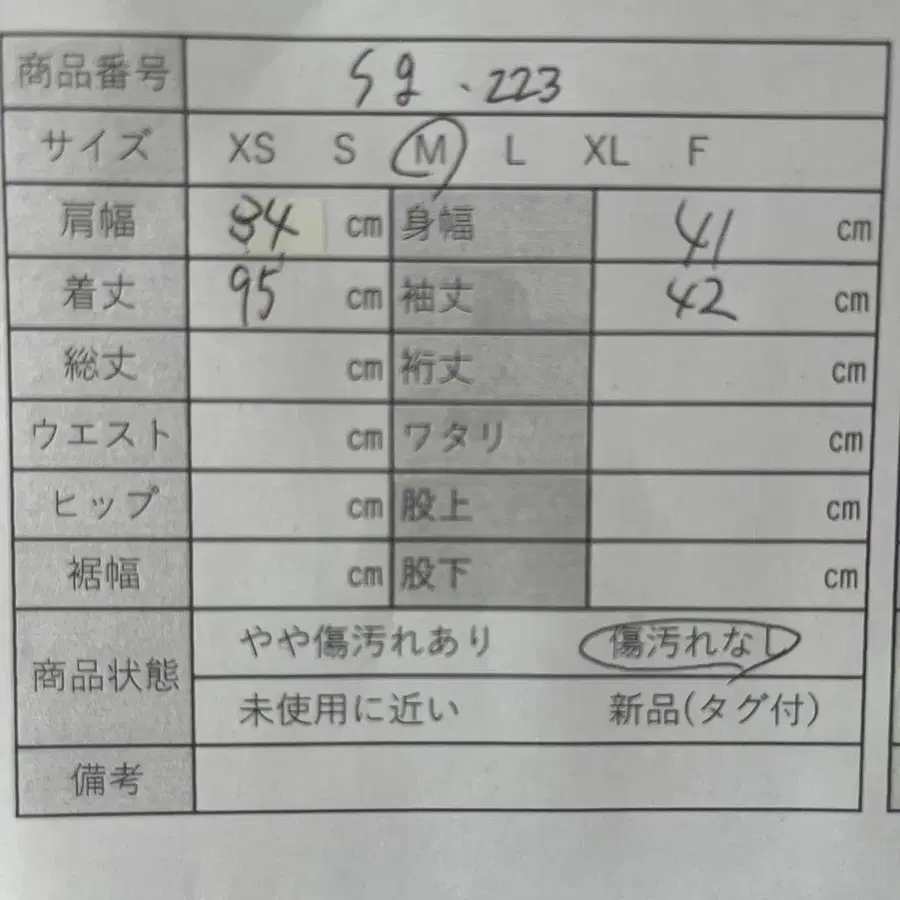 商品番号 Sg.223
サイズ XS S M L XL F
肩幅 34 cm 身幅 41 cm
着丈 95 cm 袖丈 42 cm
総丈 cm 裄丈 cm
ウエスト cm ワタリ cm
ヒップ cm 股上 cm
裾幅 cm 股下 cm
商品状態 やや傷汚れあり 傷汚れなし
未使用に近い 新品(タグ付)
備考